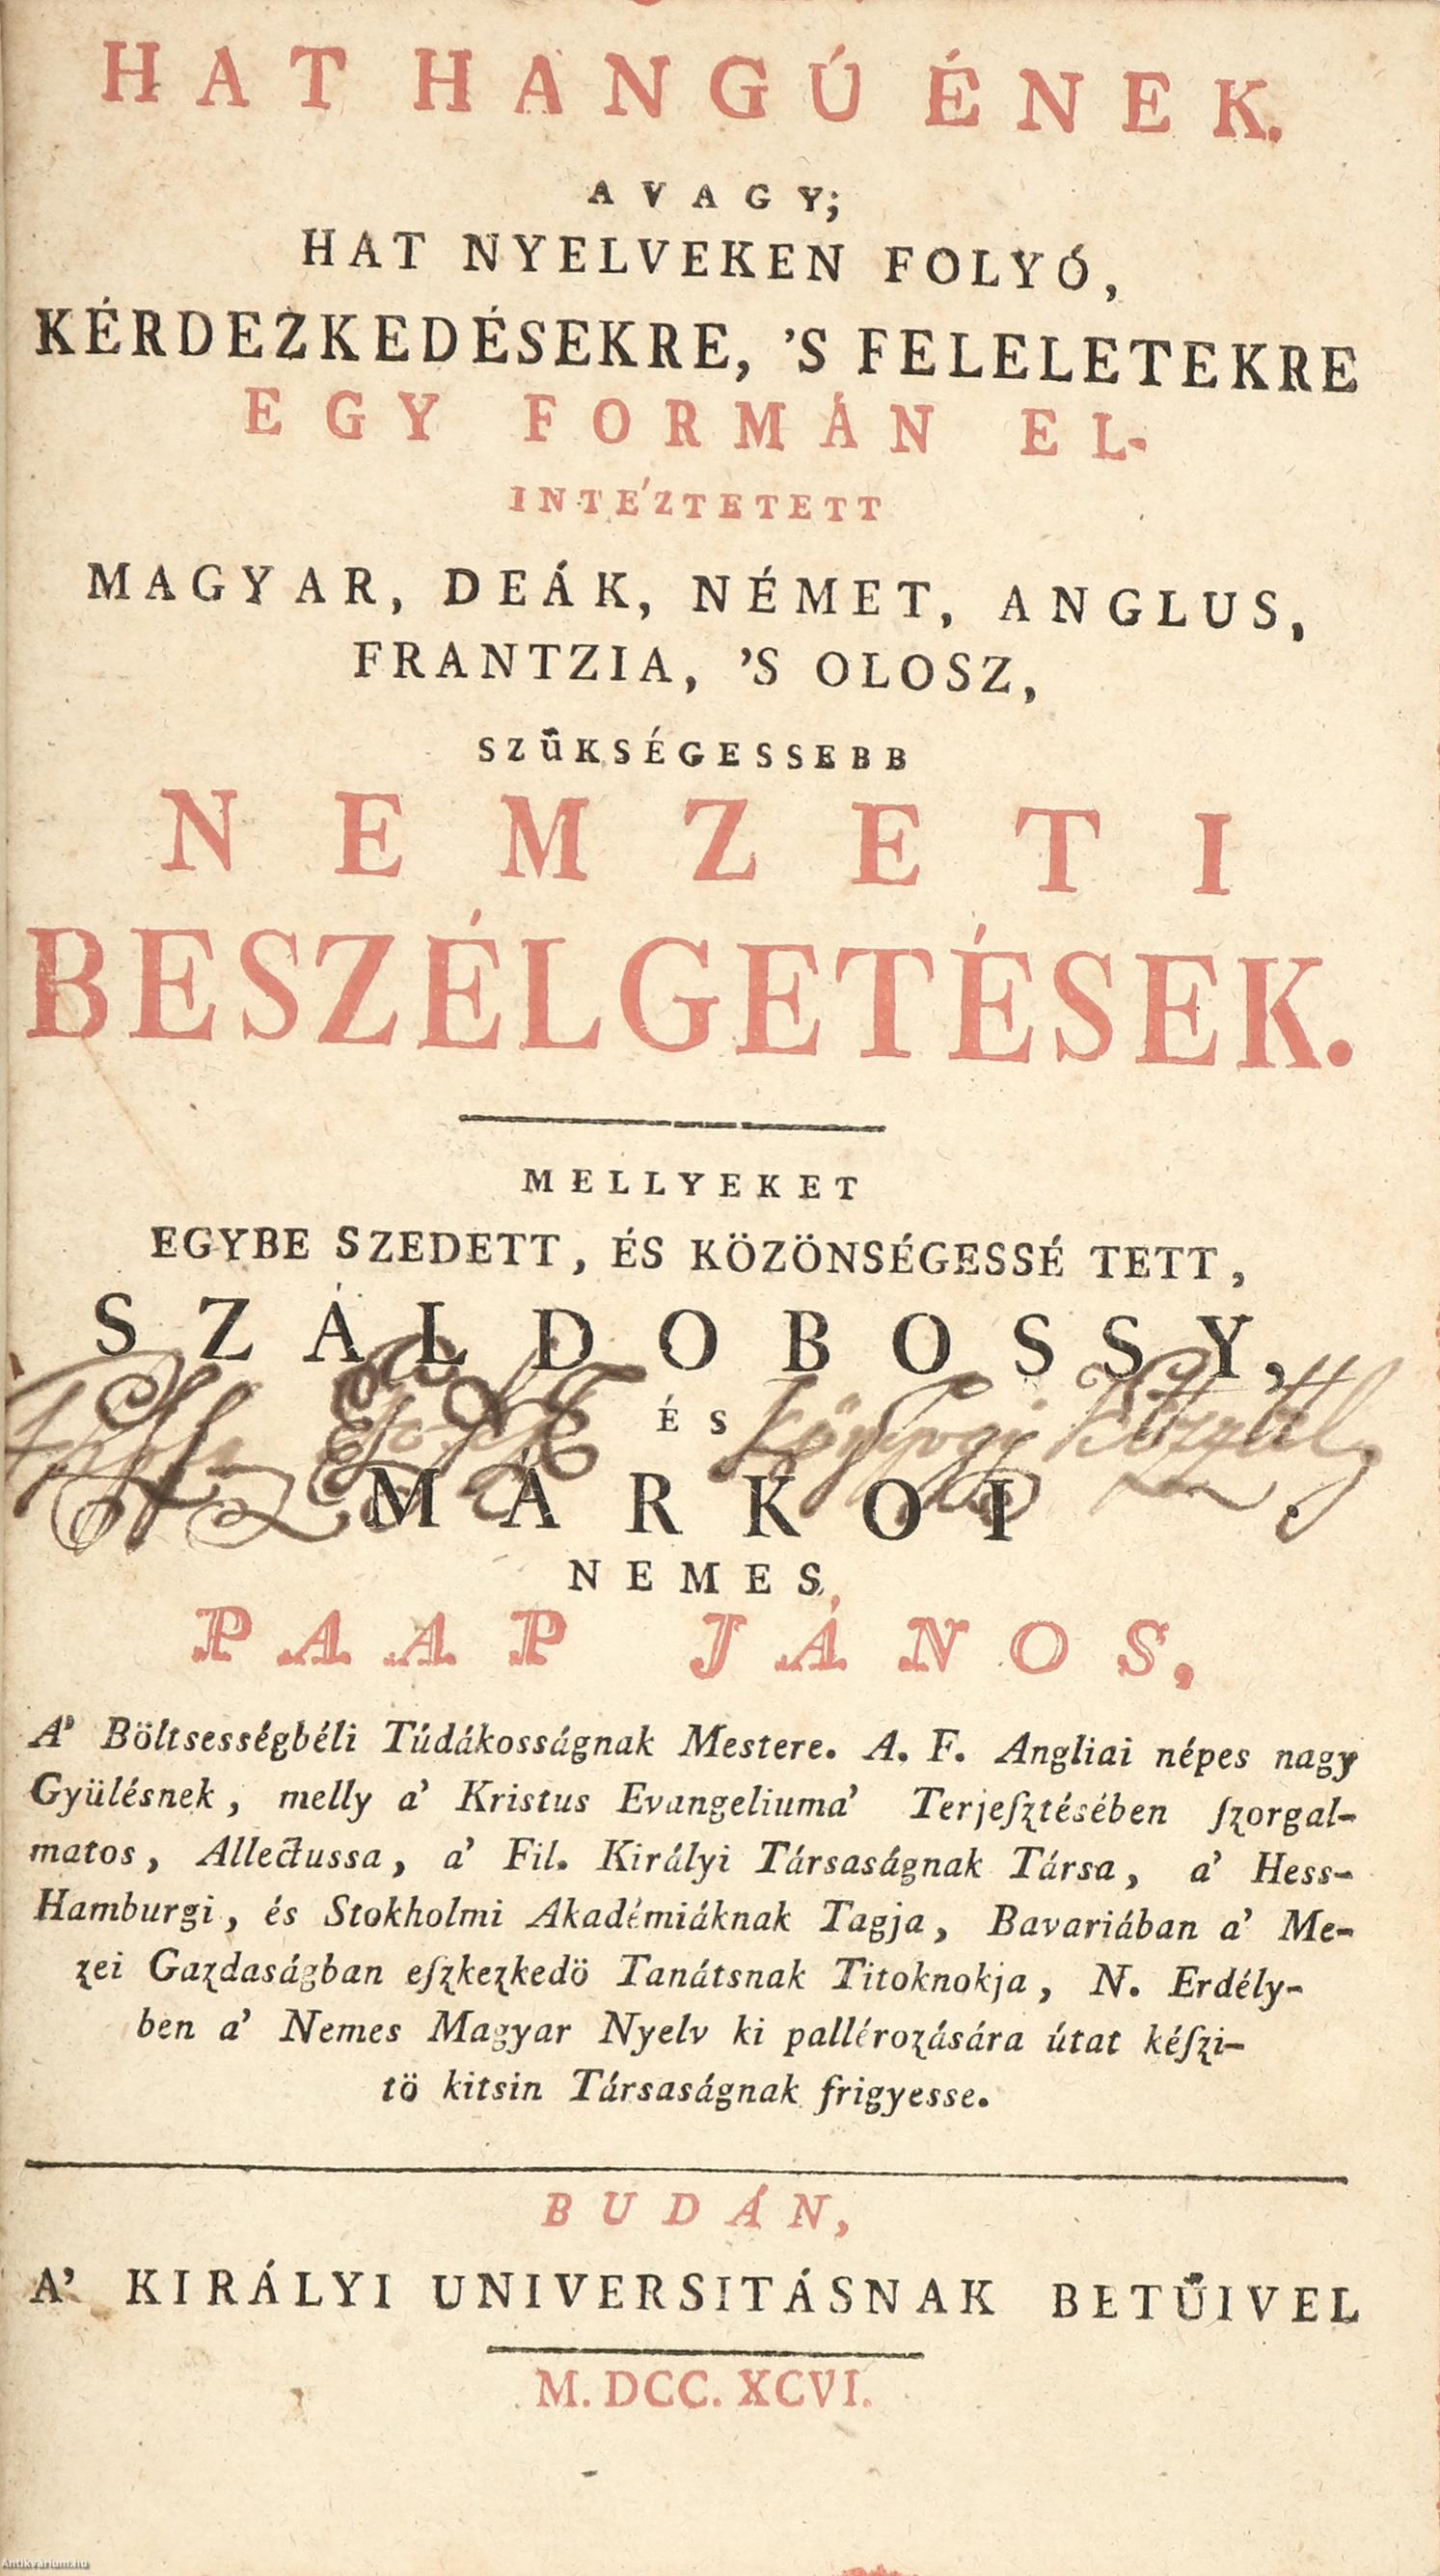 HAT HANGÚ ÉNEK.
AVAGY;
HAT NYELVEKEN FOLYÓ,
KÉRDEZKEDÉSEKRE, 'S FELELETEKRE
EGY FORMÁN EL-
INTÉZTETETT
MAGYAR, DEÁK, NÉMET, ANGLUS,
FRANTZIA, 'S OLOSZ,
SZŰKSÉGESSEBB
NEMZETI
BESZÉLGETÉSEK.
MELLYEKET
EGYBE SZEDETT, ÉS KÖZÖNSÉGESSÉ TETT,
SZÁLDOBOSSY,
ÉS
MÁRKOI
NEMES,
PAAP JÁNOS,
A' Böltsességbéli Túdákosságnak Mestere. A. F. Angliai népes nagy
Gyülésnek, melly a' Kristus Evangeliuma' Terjeſztésében ſzorgal-
matos, Allectussa, a' Fil. Királyi Társaságnak Társa, a' Hess-
Hamburgi, és Stokholmi Akadémiáknak Tagja, Bavariában a' Me-
zei Gazdaságban eſzkezkedö Tanátsnak Titoknokja, N. Erdély-
ben a' Nemes Magyar Nyelv ki pallérozására útat kéſzi-
tö kitsin Társaságnak frigyesse.
BUDÁN,
A' KIRÁLYI UNIVERSITÁSNAK BETŰIVEL
M. DCC. XCVI.
Antikvárium.hu